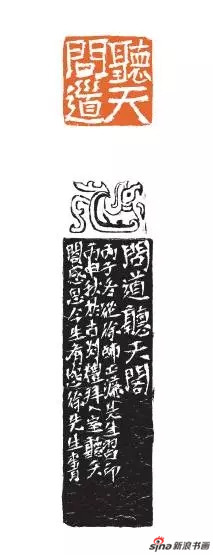 聽天
問道
問道聽天閣
丙子冬從徐師正濂先生習印
丙申秋於古刹禮拜入室聽天
閣感恩今生有徐先生
sina新浪书画